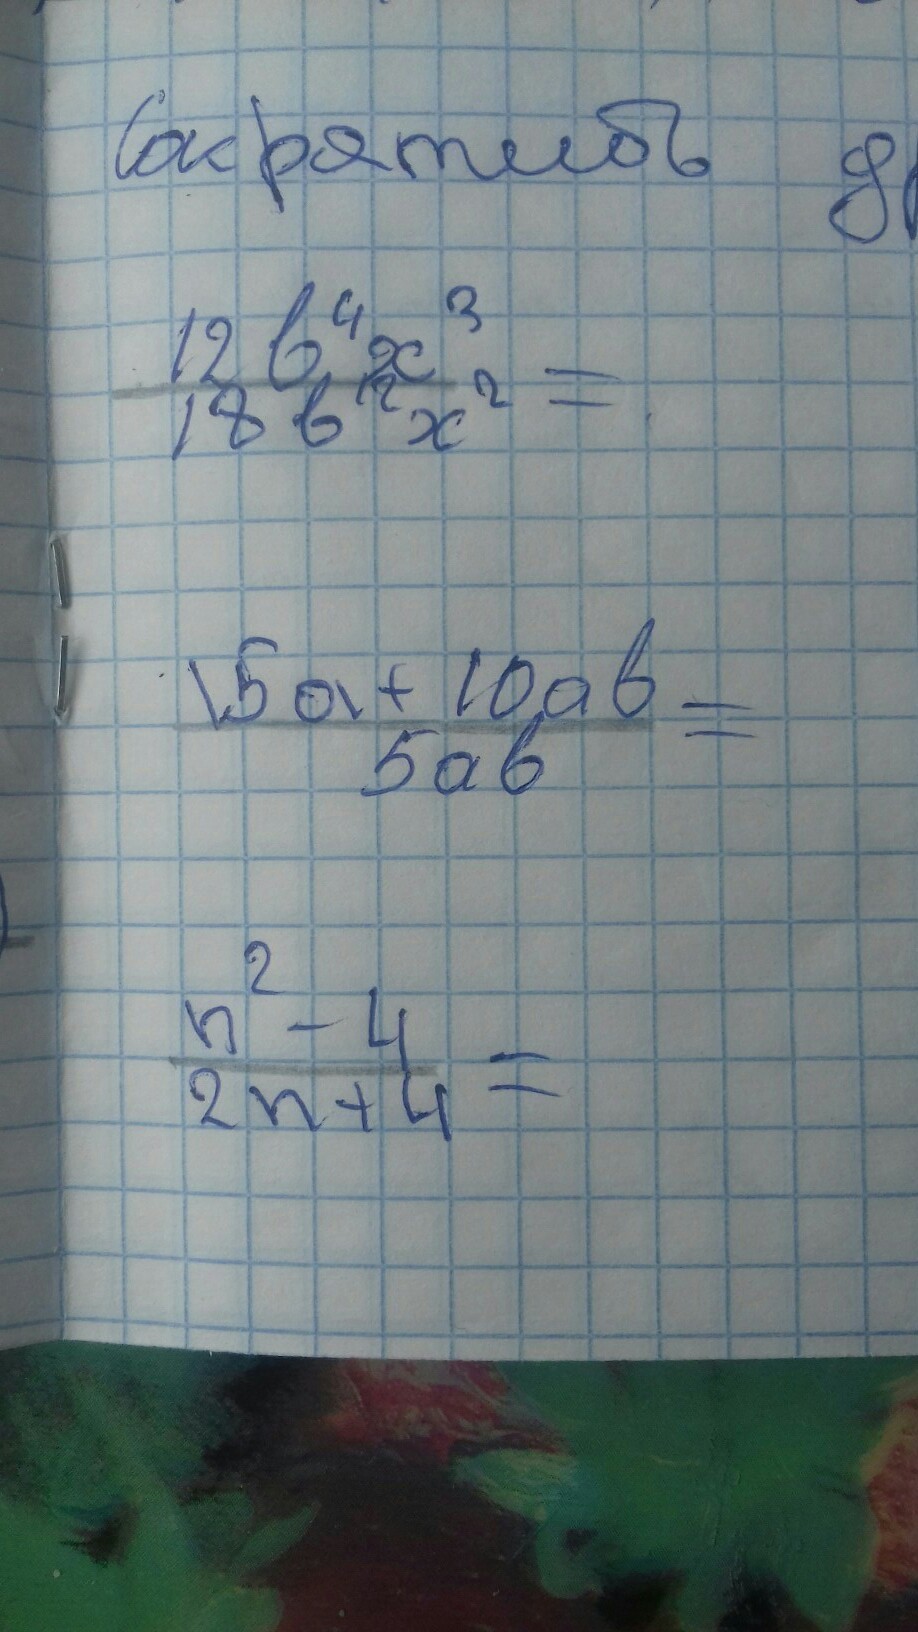 Сокрятить
12b⁴x³
18b²x² =
15a+10ab
5ab =
n²-4
2n+4 =